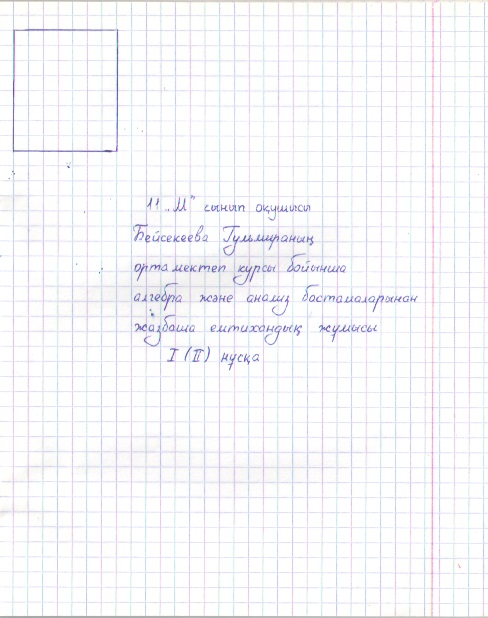 11 „М" сынып оқушысы
Бейсекеева Гульмираның
орта мектеп курсы бойынша
алгебра және анализ бастамаларынан
жазбаша емтихандық жұмысы
I (II) нұсқа